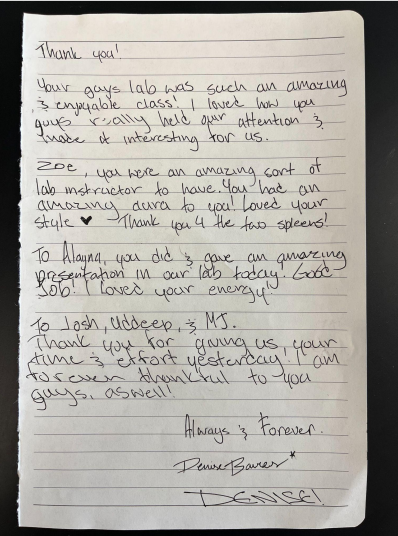 Thank you!
Your guys lab was such an amazing
& enjoyable class! I loved how you
guys really held our attention &
made it interesting for us.
Zoe, you were an amazing sort of
lab instructor to have. You had an
amazing aura to you! Loved your
style ♥ Thank you 4 the two spleens!
To Alayna, you did & gave an amazing
presentation in our lab today! Good
Job! I loved your energy
To Josh, Uddeep, & MJ.
Thank you for giving us, your
time & effort yesterday. I am
forever thankful to you
guys, aswell!
Always & Forever.
Denise
DENISE!